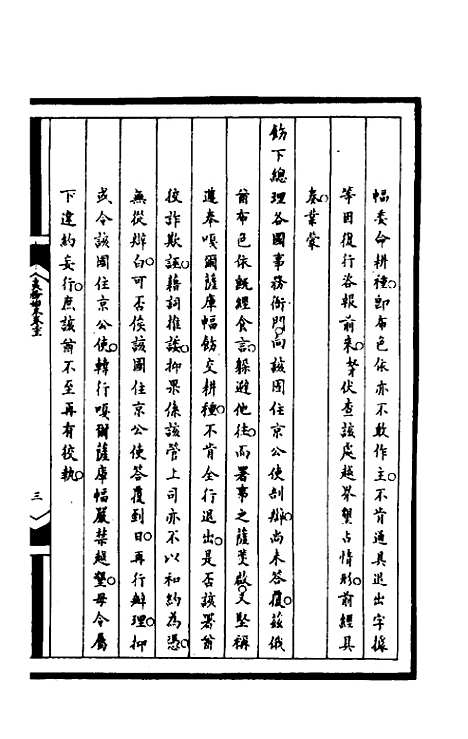 幅委命耕種。即布色依亦不敢作主。不肯通具退出字據
等因復行咨報前來。𡖖伏查該處越界墾占情形。前經具
奏業蒙
飭下總理各國事務衙門。向該國住京公使剖辦。尚未答復。茲俄
酋布色依既經食言。躲避他往。而署事之薩
又堅稱
遵奉嘎爾薩庫幅飭交耕種。不肯全行退出。是否該署酋
狡詐欺誣。藉詞推諉。抑果係該管上司亦不以和約為憑。
無從辦白。可否俟該國住京公使答覆到日。再行辦理。抑
或令該國住京公使。轉行嘎爾薩庫幅嚴禁越墾。毋令屬
下違約妄行。庶該酋不至再有狡執。
三